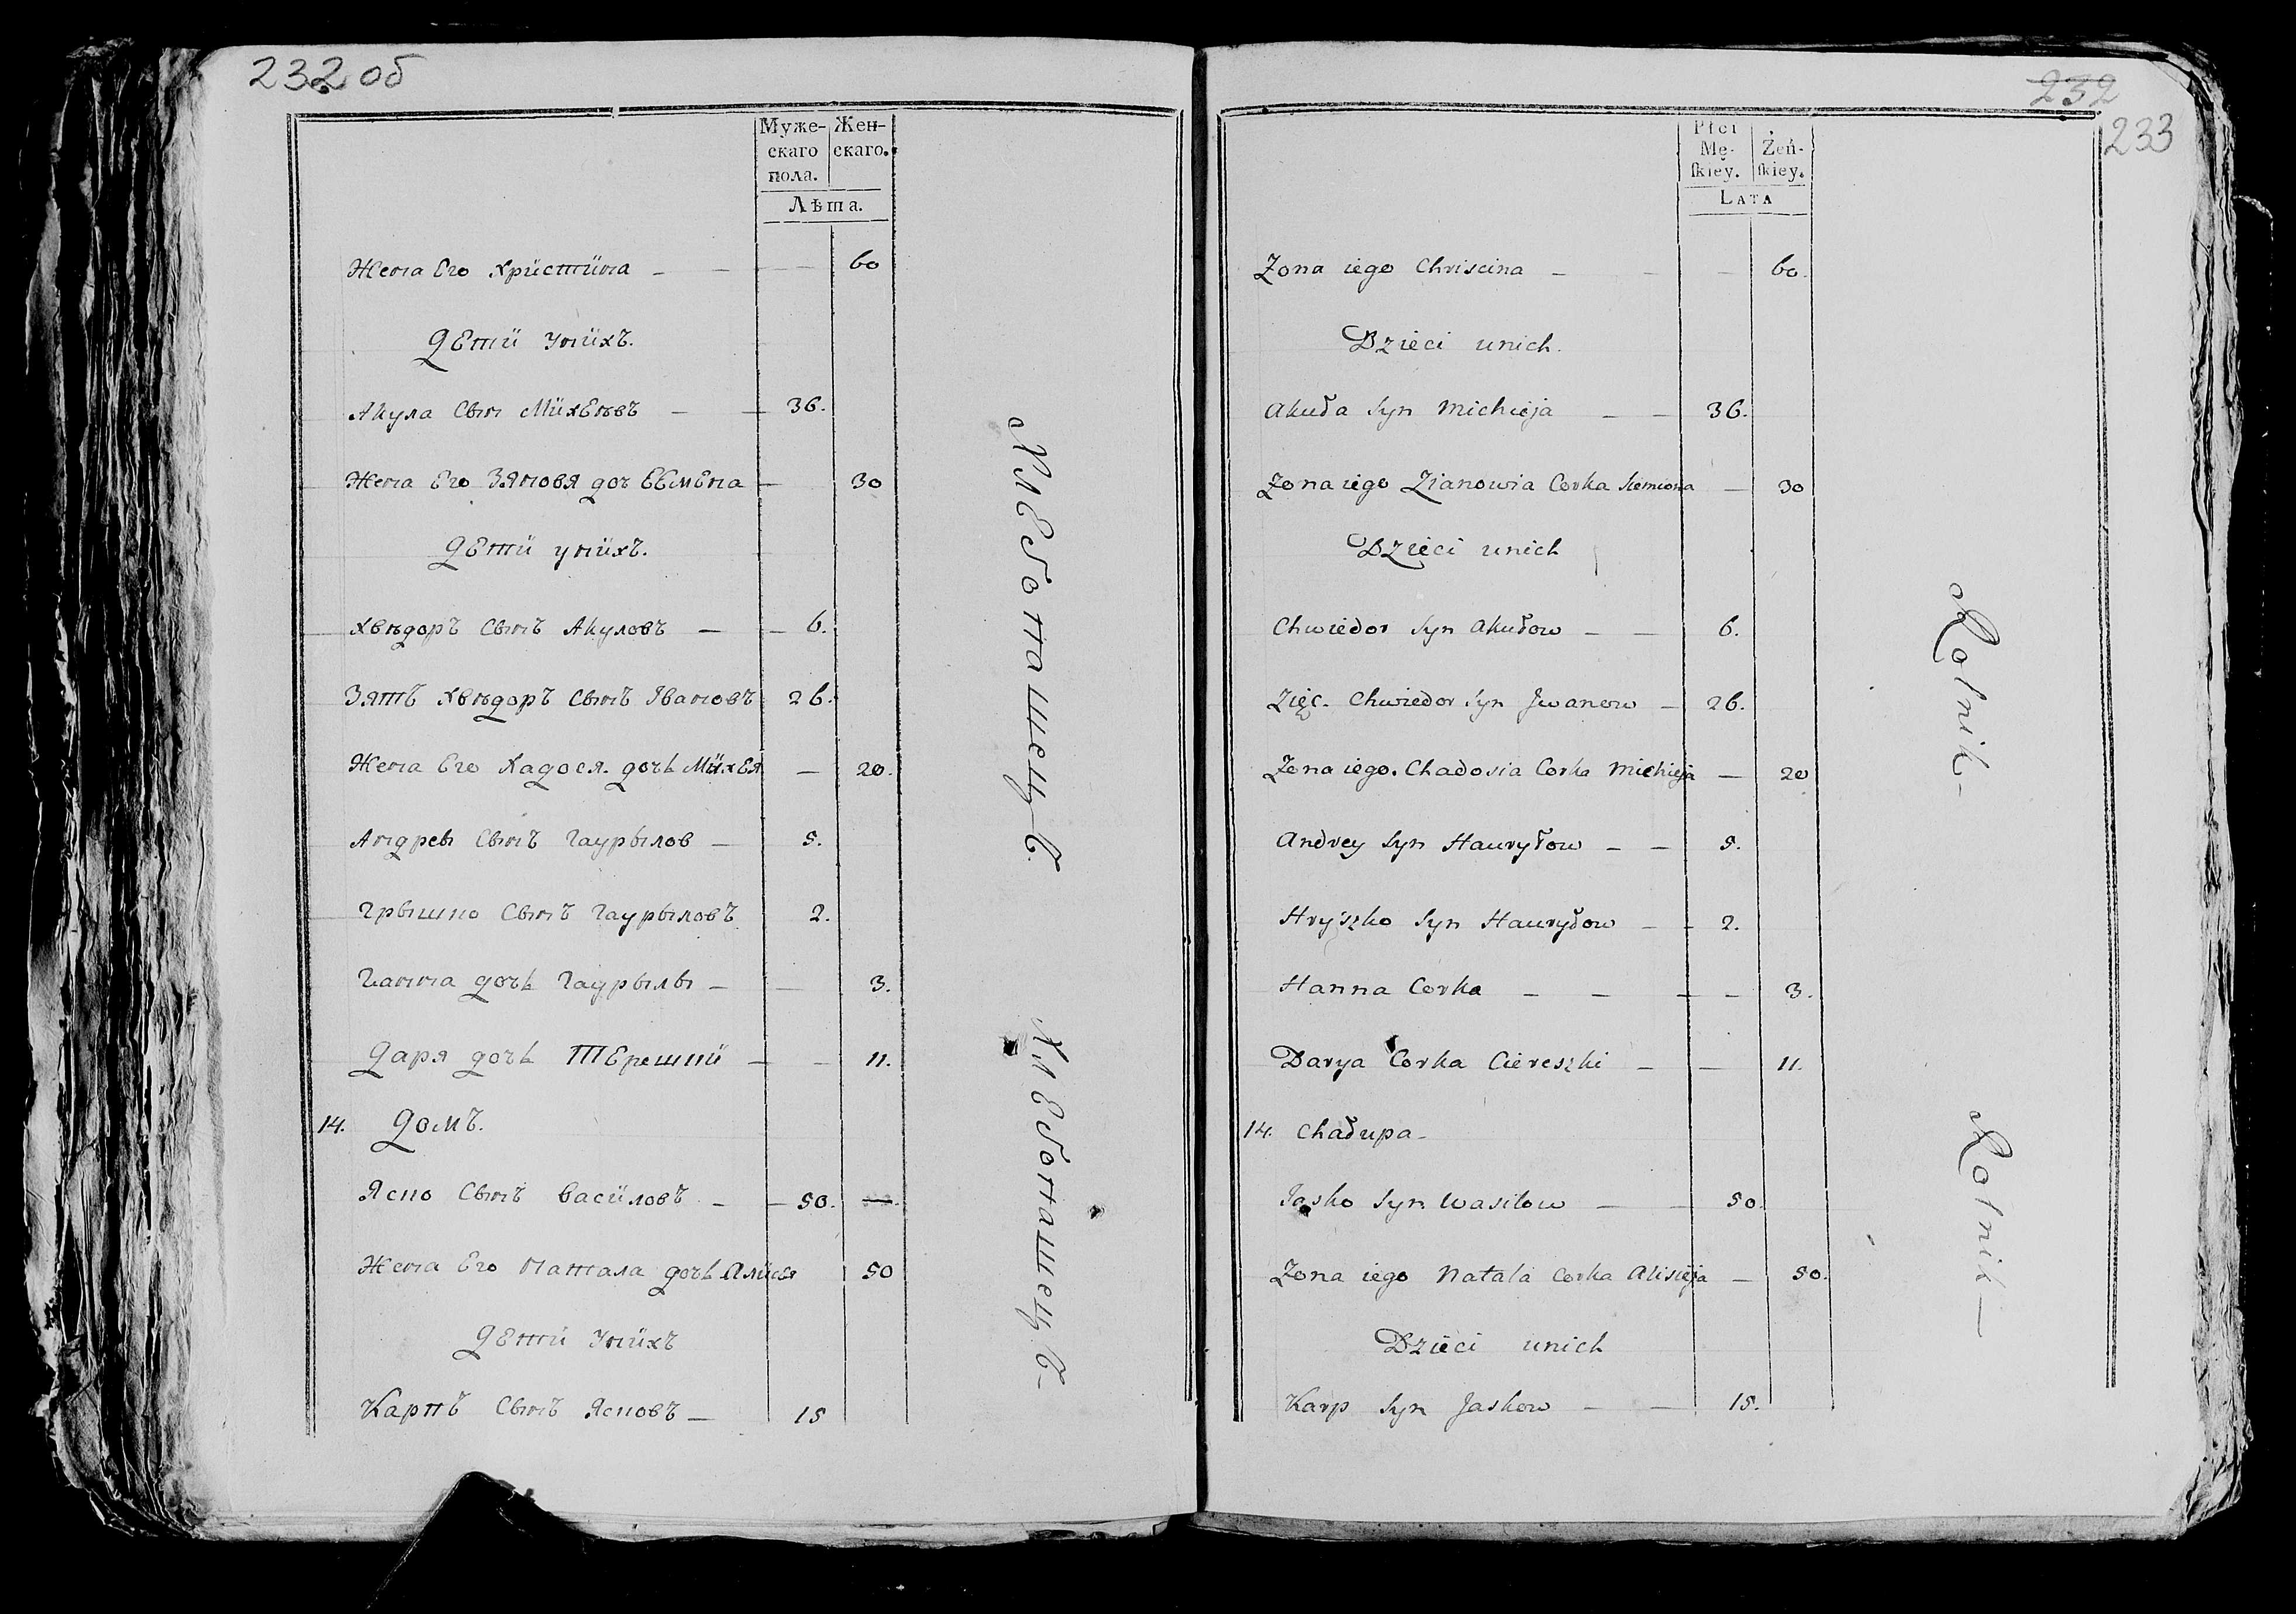 232 об
Муже-
скаго
пола.
Жен-
скаго.
Лѣта.
Жена Его Христïна — — — 60
Дети унïхъ.
Акула Сынъ Мïхеѣвъ — — 36.
Жена Его Зяновя доч Есмена — 30
Дети унïхъ.
Хвѣдоръ Сынъ Акуловъ — — 6.
Зять Хвѣдоръ Сынъ Івановъ 26.
Жена Его Хадося. дочь Мïхея — 20.
Андреы Сынъ Гаурылов — 5.
Грышко Сынъ Гаурыловъ 2.
Ганна дочь Гаурылы — — 3.
Даря дочь Терешкï — — 11.
14. Домъ.
Яско Сынъ Васïловъ — — 50.
Жена Его Натала дочь Алисея 50
Дети Унïхъ
Карпъ Сынъ Ясковъ — 15
Хлебопашецъ.
Хлебопашецъ.
232
233
Płci
Mę-
ſkiey.
Żeń-
ſkiey.
LATA
Zona iego Chriscina — — — 60.
Dzieci unich.
Akuła Syn Michieja — — 36.
Zona iego Zianowia Corka Siemiona — 30
Dzieci unich
Chwiedor Syn Akułow — — 6.
Zięc. Chwiedor Syn Jwanow — 26.
Zona iego. Chadosia Corka Michieja — 20
Andrey Syn Hauryłow — — 5.
Hryszko Syn Hauryłow — — 2.
Hanna Corka — — — — 3.
Darya Corka Ciereszki — — 11.
14. Chałupa —
Jasko Syn Wasilow — — 50.
Zona iego Natala Corka Alisieja — 50.
Dzieci unich
Karp Syn Jaskow — — 15.
Rolnik —
Rolnik —